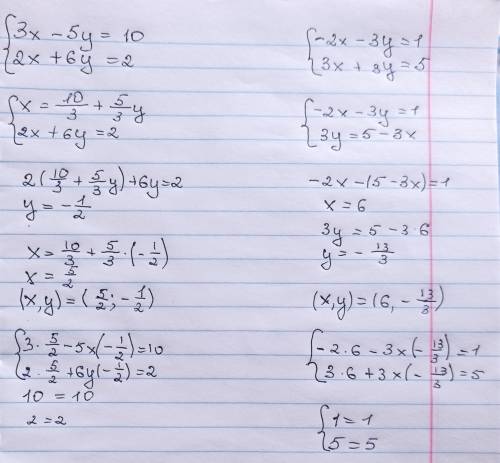 3x - 5y = 10
2x + 6y = 2
x = 10/3 + 5/3 y
2x + 6y = 2
2(10/3 + 5/3 y) + 6y = 2
y = - 1/2
x = 10/3 + 5/3 · (- 1/2)
x = 5/2
(x,y) = (5/2; - 1/2)
3 · 5/2 - 5x(- 1/2) = 10
2 · 5/2 + 6y(- 1/2) = 2
10 = 10
2 = 2
-2x - 3y = 1
3x + 3y = 5
-2x - 3y = 1
3y = 5 - 3x
-2x - (5 - 3x) = 1
x = 6
3y = 5 - 3 · 6
y = - 13/3
(x,y) = (6, - 13/3)
-2 · 6 - 3x(- 13/3) = 1
3 · 6 + 3x(- 13/3) = 5
1 = 1
5 = 5